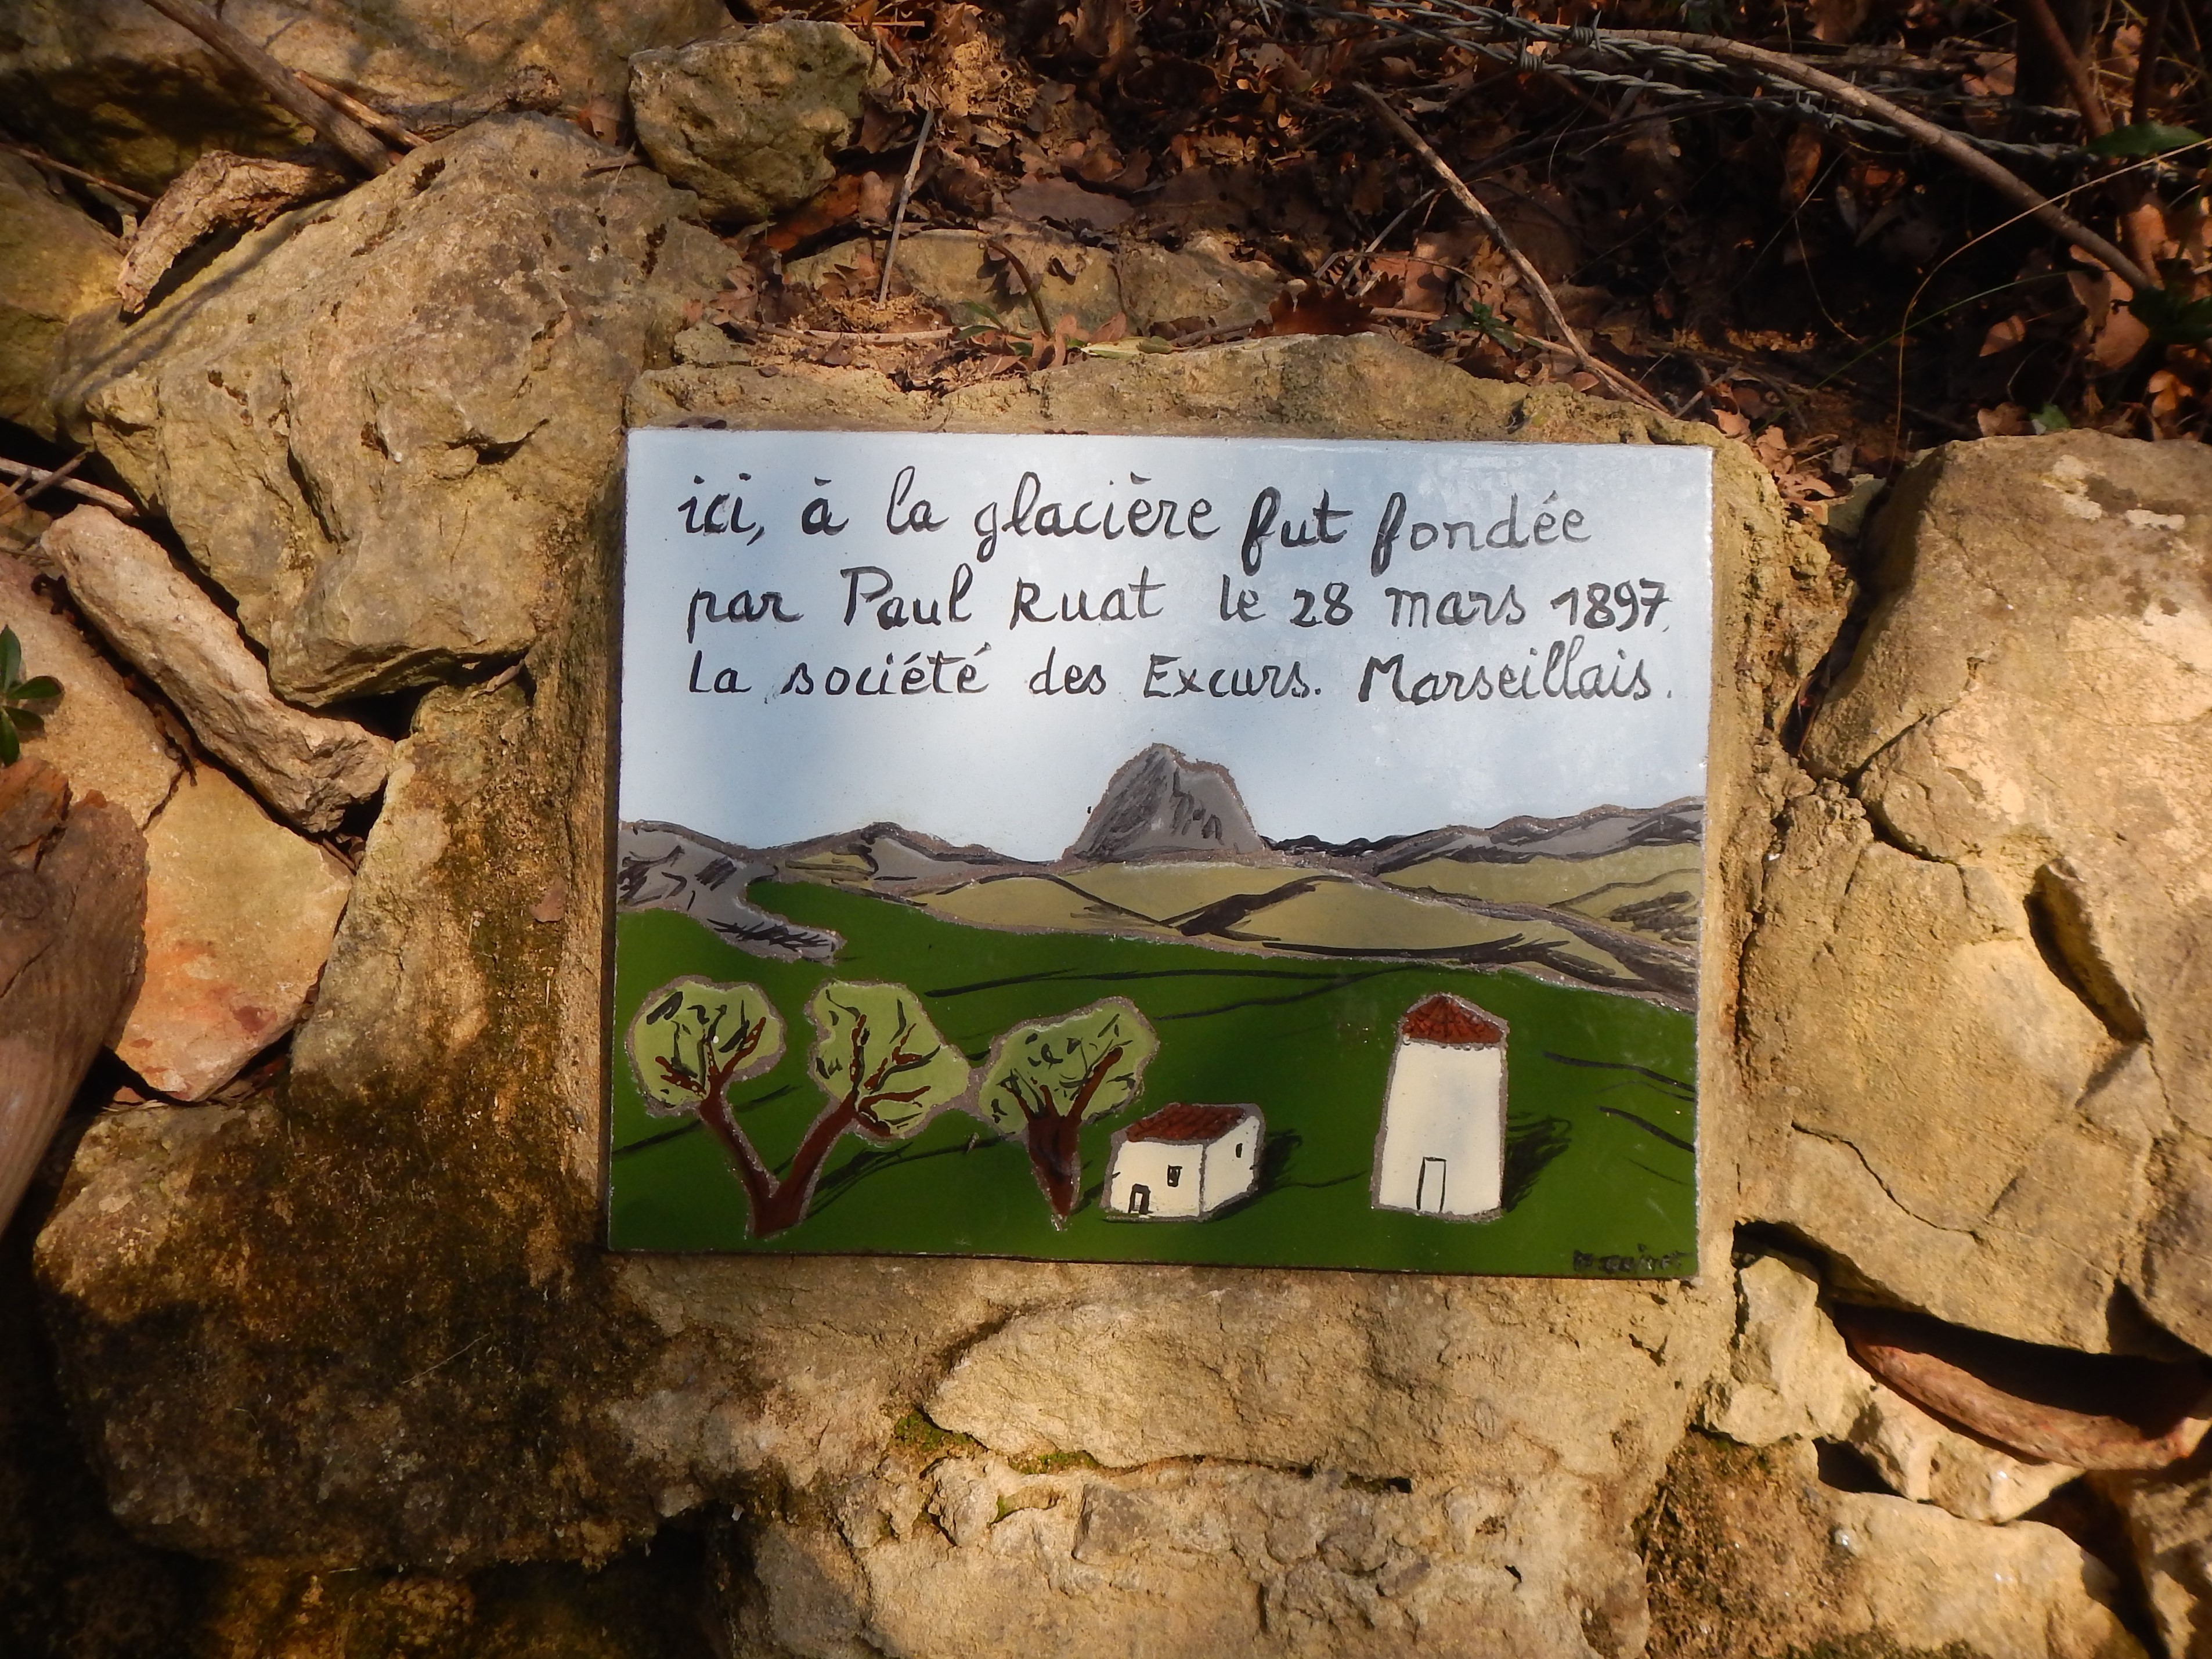 ici, à la glacière fut fondée
par Paul Ruat le 28 mars 1897
La société des Excurs. Marseillais.